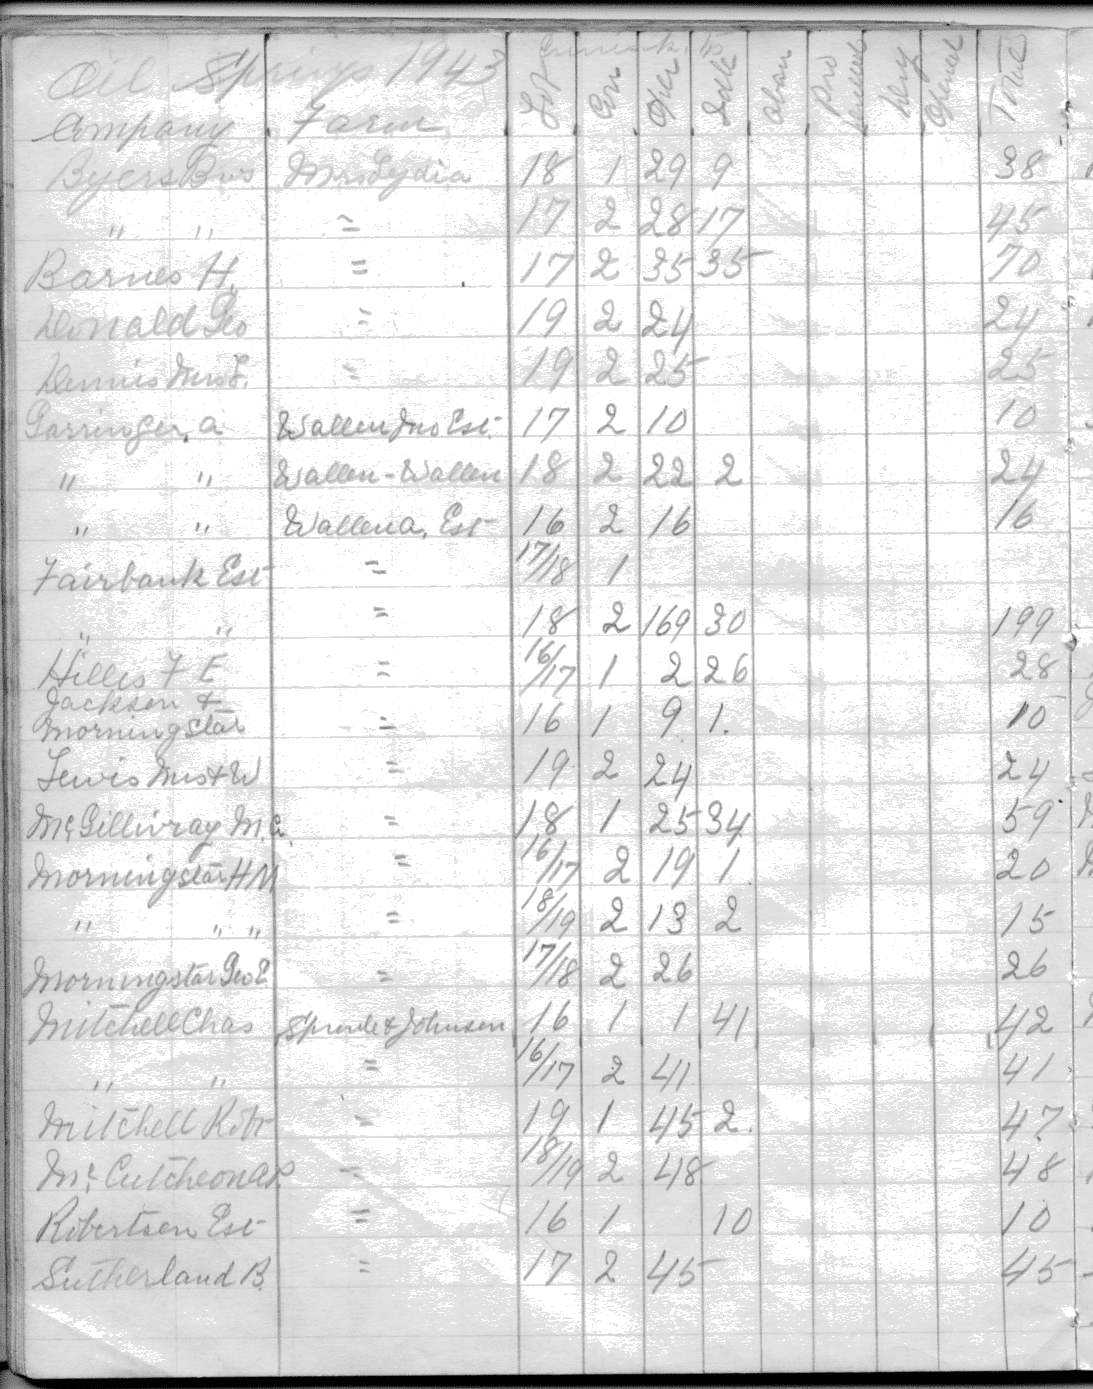 Oil Springs 1943
Company Farm Lot Con Oper Idle Aban Dry Total
Byers Bros Mrs Lydia 18 1 29 9 38
" " = 17 2 28 17 45
Barnes H. = 17 2 35 35 70
Donald Geo = 19 2 24 24
Dennis Mrs F. = 19 2 25 25
Garringer, A Wallen Jno Est. 17 2 10 10
" " Wallen-Wallen 18 2 22 2 24
" " Wallen A. Est 16 2 16 16
Fairbank Est = 17/18 1
" " = 18 2 169 30 199
Hillis F E = 16/17 1 2 26 28
Jackson &
Morningstar = 16 1 9 1. 10
Lewis Mrs W = 19 2 24 24
McGillivray M.C. = 18 1 25 34 59
Morningstar H M = 16/17 2 19 1 20
" " " = 18/19 2 13 2 15
Morningstar Geo E = 17/18 2 26 26
Mitchell Chas & Johnson 16 1 1 41 42
" " = 16/17 2 41 41
Mitchell Robt = 19 1 45 2. 47
McCutcheon A R = 18/19 2 48 48
Robertson Est = 16 1 10 10
Sutherland B. = 17 2 45 45